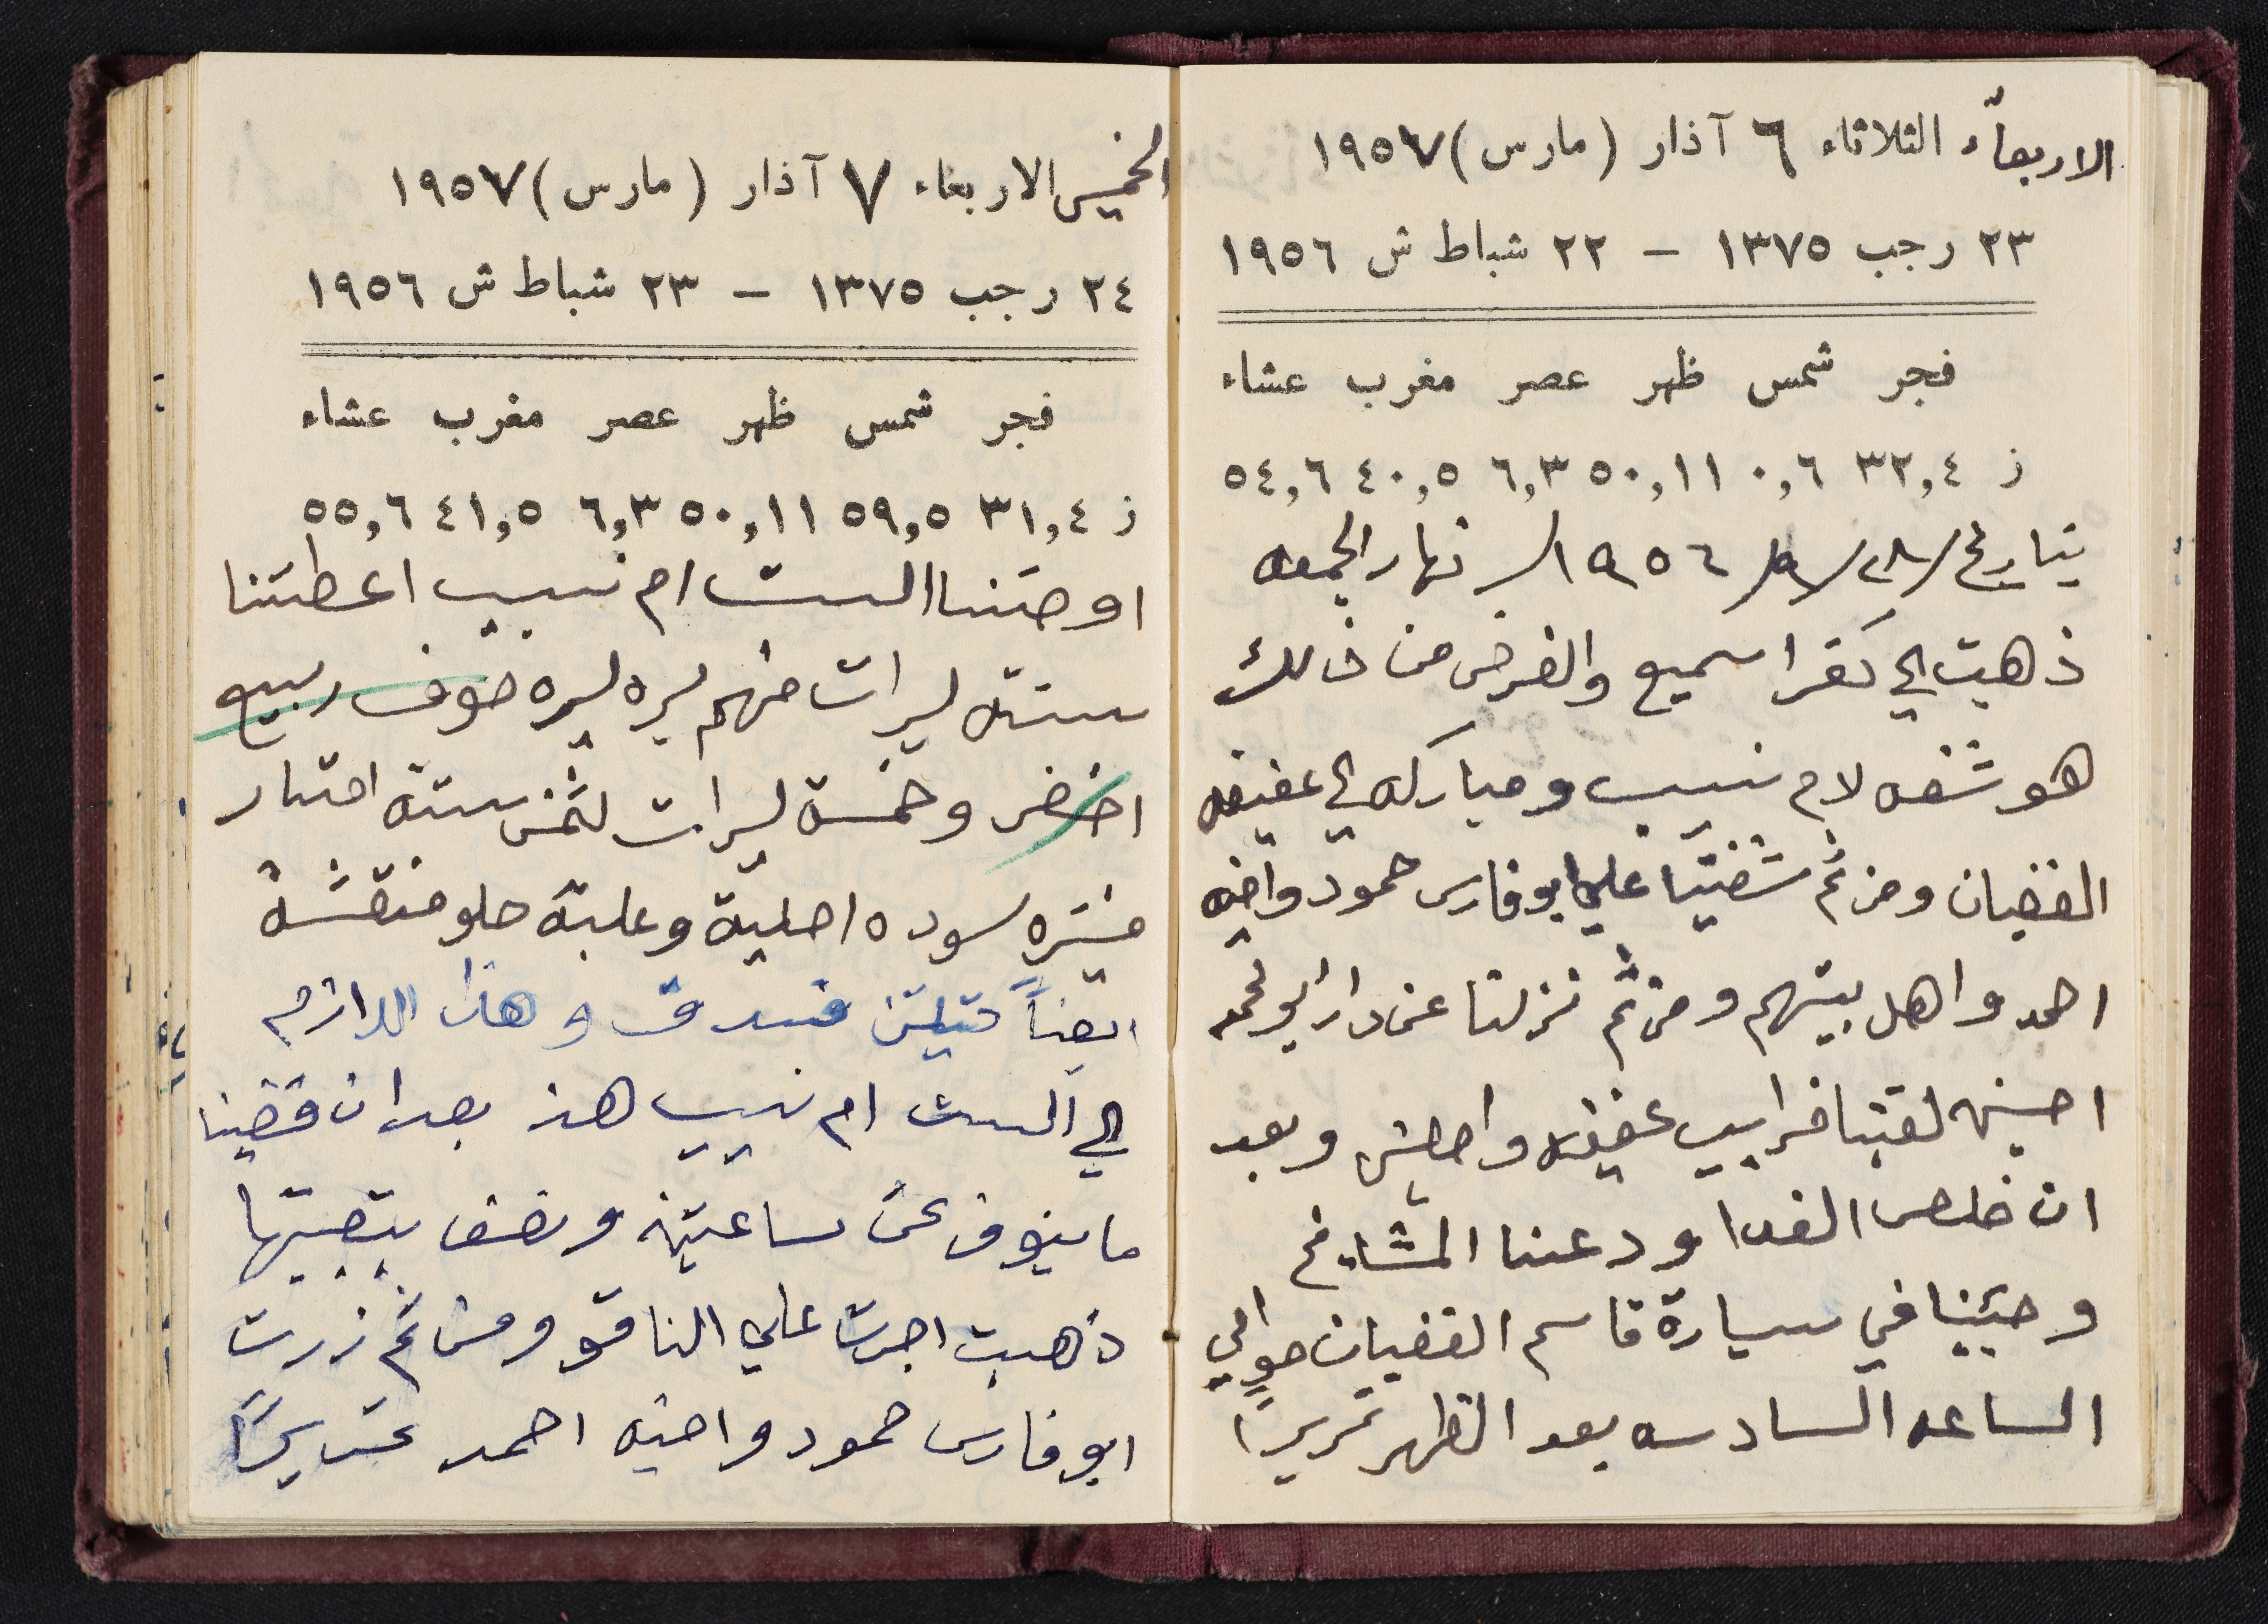 الاربعاء الثلاثاء ٦ آذار (مارس) ١٩٥٧
٢٣ رجب ١٣٧٥ – ٢٢ شباط ش ١٩٥٦
فجر شمس ظهر عصر مغرب عشاء
ز ٣٢,٤ ٠,٦ ٥٠,١١ ٦,٣ ٤٠,٥ ٥٤,٦
بتاريخ /٢٨/٩/١٩٥٦/ نهار الجمعه
ذهبت الى كفرا سميع والغرض من ذالك
هو شفه لام نسيب ومباركه الى عفيفه
الغضبان ومن ثم شفينا على ابو فارس حمود واخيه
احمد واهل بيتهم ومن ثم نزلنا عن دار ابو محمد
احسين لقينا فرا بيب عفيفه واصلين وبعد
ان خلص الغدا ودعنا المشايخ
وجينا في سيارة قاسم الغضبان حوالي
الساعه السادسه بعد الظهر تمريرا
الخميس الاربعاء ٧ آذار (مارس) ١٩٥٧
٢٤ رجب ١٣٧٥ – ٢٣ شباط ش ١٩٥٦
فجر شمس ظهر عصر مغرب عشاء
ز ٣١,٤ ٥٩,٥ ٥٠,١١ ٦,٣ ٤١,٥ ٥٥,٦
اوصتنا الست ام نسيب اعطتنا
سته ليرات منهم ليره ليره صوف ربيع
اخضر وخمسة ليرات لثمن ستة امتار
سوده اصلية وعلبة حلو منقشة
ايضاً وهذا اللازم
الى الست ام نسيب هذ بعد ان قضينا
ما ينوف عن ساعتين ونصف
ذهبت اجرت على الناقو ومن ثم زرت
ابو فارس حمود واخيه احمد